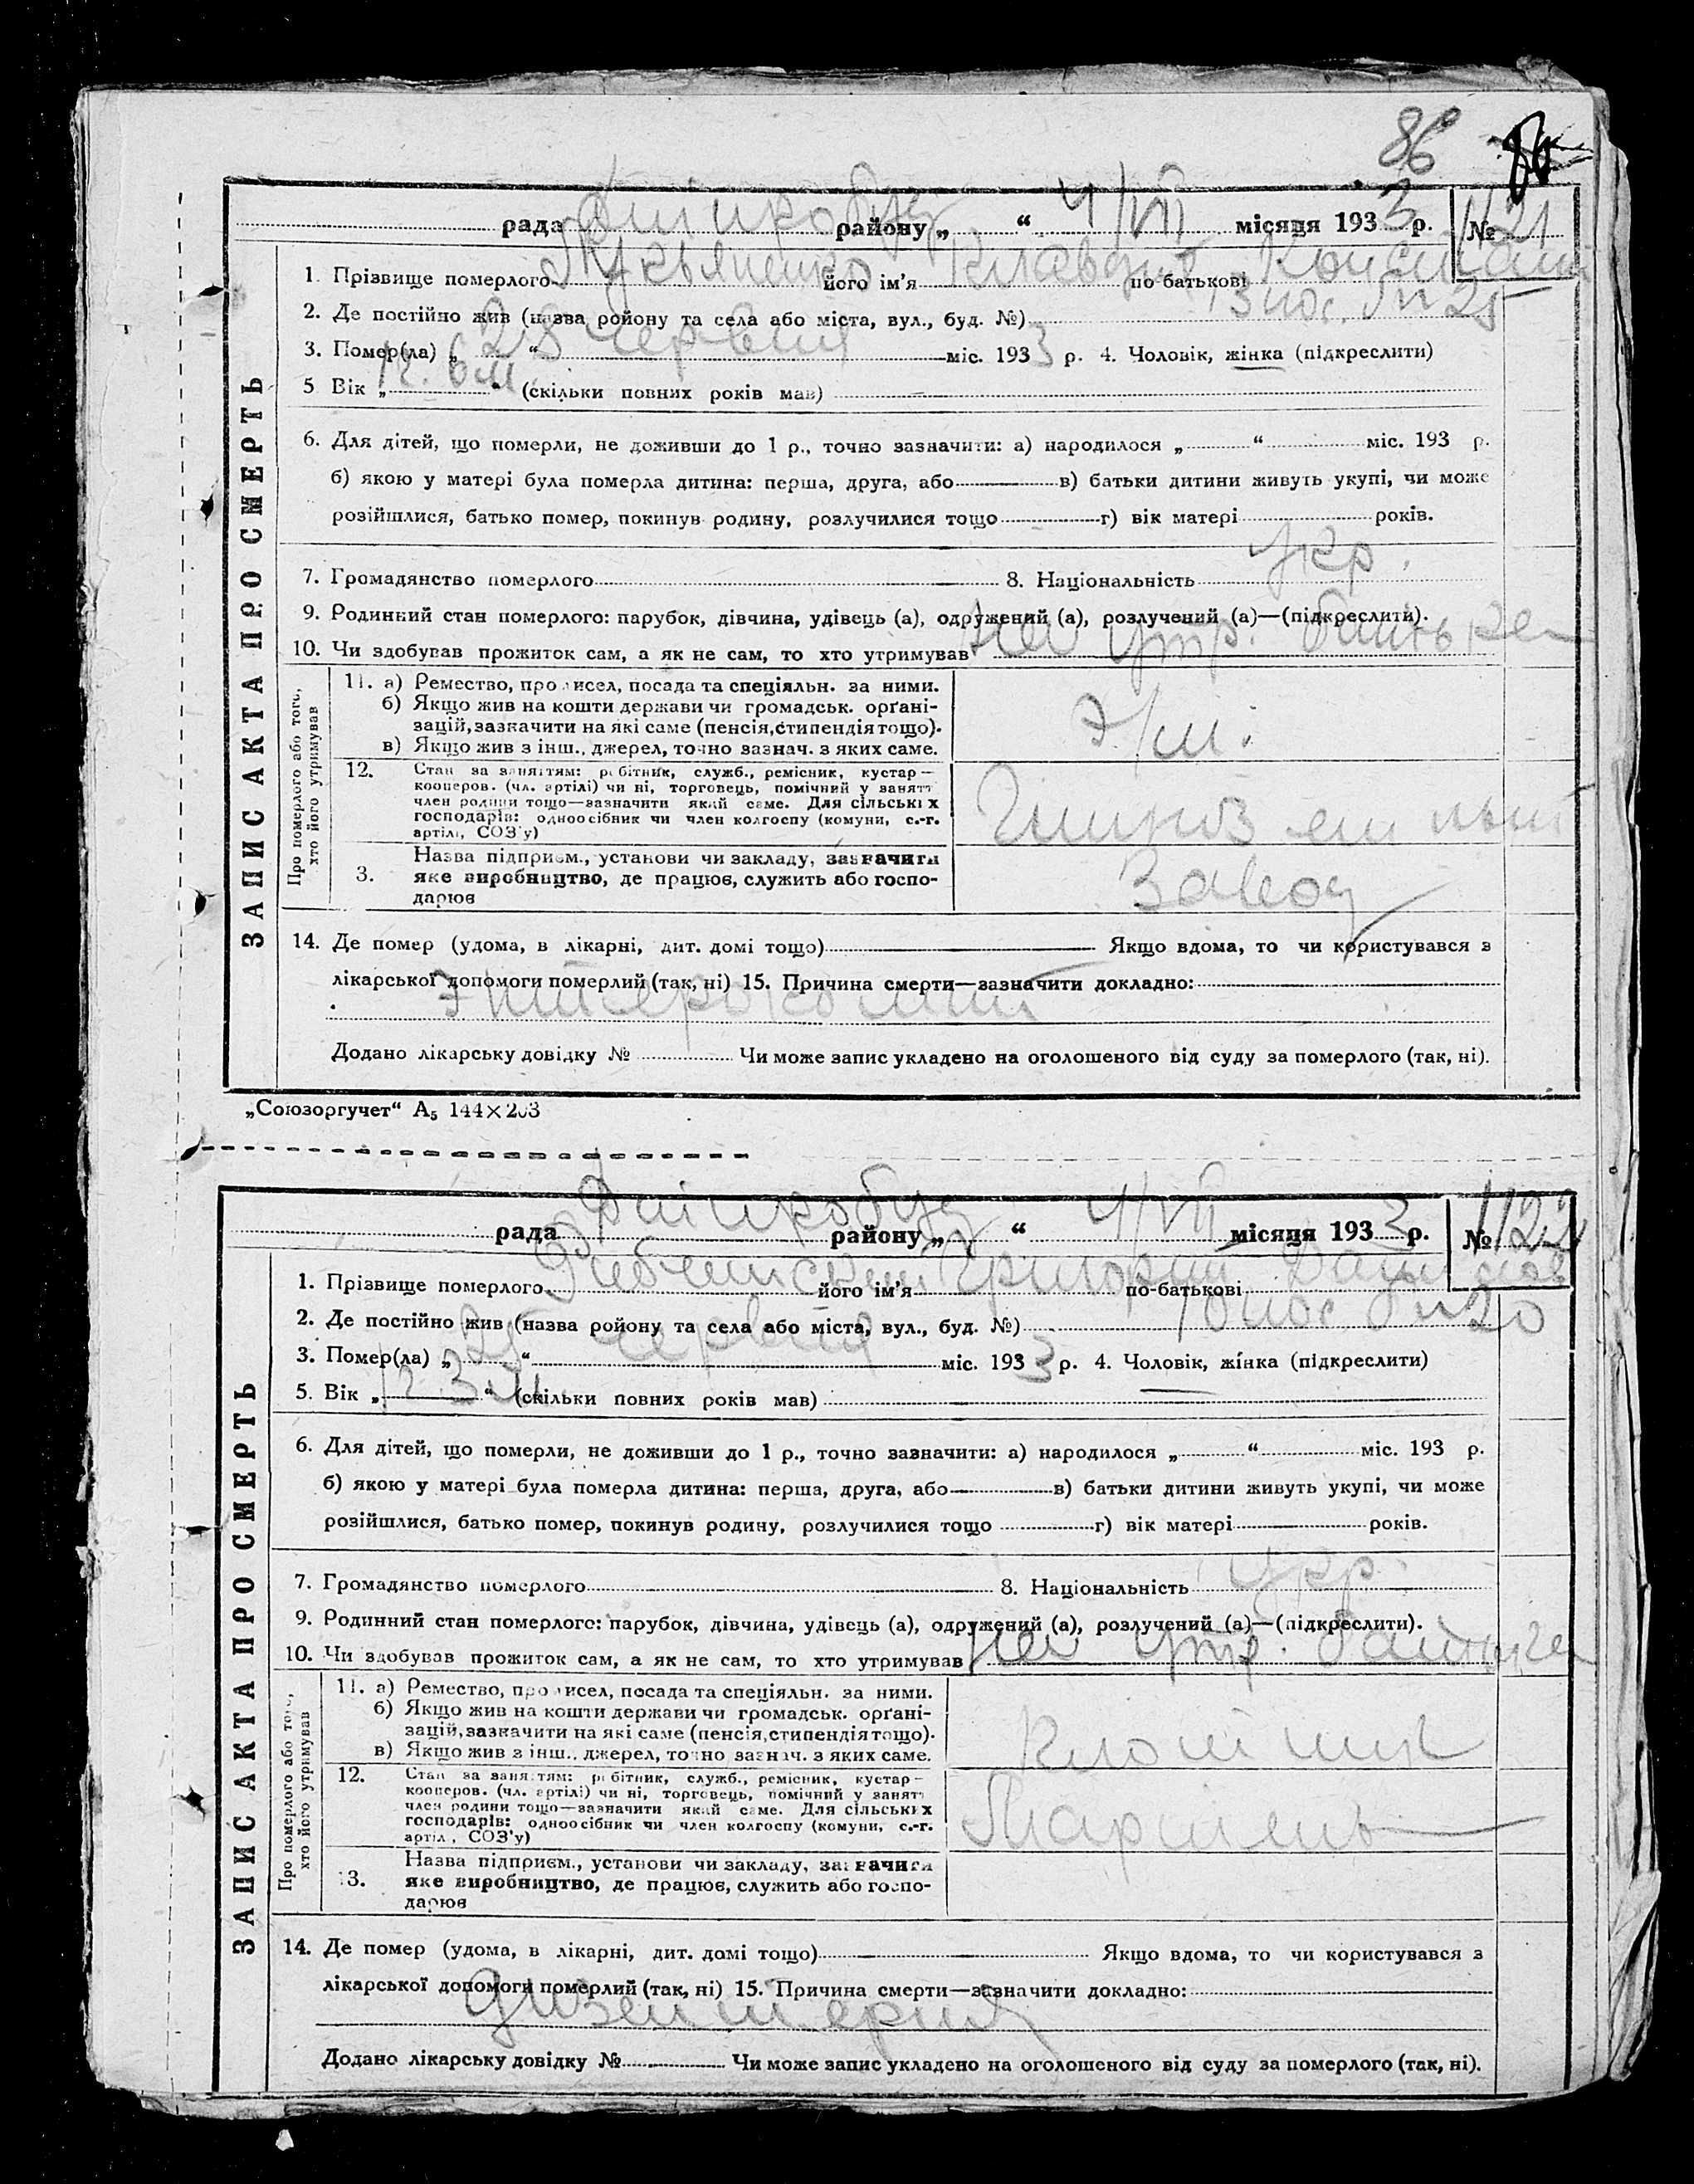 86
рада Дніпробуд району „ “ 4/VII місяця 1933 р. № 1121
1. Прізвище померлого Лукьяненко його ім'я Клавдия по-батькові Констант
2. Де постійно жив (назва ройону та села або міста, вул., буд. №) 13 пос. б н 25
3. Помер(ла) „ 28 “ червня міс. 1933 р. 4. Чоловік, жінка (підкреслити)
5 Вік „ 1г. 6м “ (скільки повних років мав)
6. Для дітей, що померли, не доживши до 1 р., точно зазначити: а) народилося „ “ міс. 193 р.
б) якою у матері була померла дитина: перша, друга, або в) батьки дитини живуть укупі, чи може
розійшлися, батько помер, покинув родину, розлучилися тощо г) вік матері років.
7. Громадянство померлого 8. Національність укр.
9. Родинний стан померлого: парубок, дівчина, удівець (а), одружений (а), розлучений (а)—(підкреслити).
10. Чи здобував прожиток сам, а як не сам, то хто утримував на утр. батька
ЗАПИС АКТА ПРО СМЕРТЬ
Про померлого або того, хто його утримував
11. а) Ремество, промисел, посада та спеціяльн. за ними.
б) Якщо жив на кошти держави чи громадськ. орґані-
зацій, зазначити на які саме (пенсія, стипендія тощо).
в) Якщо жив з інш., джерел, точно зазнач. з яких саме.
12. Стан за заняттям: робітник, служб., ремісник, кустар—
кооперов. (чл. артілі) чи ні, торговець, помічний у занятт
член родини тощо—зазначити який саме. Для сільських
господарів: одноосібник чи член колгоспу (комуни, с.-г.
артілі, СОЗ'у)
Назва підприєм., установи чи закладу, зазначити
3. яке виробництво, де працює, служить або госпо-
дарює
завод
14. Де помер (удома, в лікарні, дит. домі тощо) Якщо вдома, то чи користувався з
лікарської допомоги померлий (так, ні) 15. Причина смерти—зазначити докладно:
Энтероколит
Додано лікарську довідку № Чи може запис укладено на оголошеного від суду за померлого (так, ні).
„Союзоргучет“ А₅ 144×203
рада Дніпробуд району „ “ 4/VII місяця 1933 р. № 1122
1. Прізвище померлого його ім'я Григорий по-батькові
2. Де постійно жив (назва ройону та села або міста, вул., буд. №) 10 пос б н 20
3. Помер(ла) „ 25 “ червня міс. 1933 р. 4. Чоловік, жінка (підкреслити)
5. Вік „ 1г. 3м. “ (скільки повних років мав)
6. Для дітей, що померли, не доживши до 1 р., точно зазначити: а) народилося „ “ міс. 193 р.
б) якою у матері була померла дитина: перша, друга, або в) батьки дитини живуть укупі, чи може
розійшлися, батько помер, покинув родину, розлучилися тощо г) вік матері років.
7. Громадянство померлого 8. Національність укр.
9. Родинний стан померлого: парубок, дівчина, удівець (а), одружений (а), розлучений (а)—(підкреслити).
10. Чи здобував прожиток сам, а як не сам, то хто утримував на утр. батька
ЗАПИС АКТА ПРО СМЕРТЬ
Про померлого або того, хто його утримував
11. а) Ремество, промисел, посада та спеціяльн. за ними.
б) Якщо жив на кошти держави чи громадськ. орґані-
зацій, зазначити на які саме (пенсія, стипендія тощо).
в) Якщо жив з інш., джерел, точно зазнач. з яких саме.
12. Стан за заняттям: робітник, служб., ремісник, кустар—
кооперов. (чл. артілі) чи ні, торговець, помічний у занятт
член родини тощо—зазначити який саме. Для сільських
господарів: одноосібник чи член колгоспу (комуни, с.-г.
артіл, СОЗ'у)
Мартень
Назва підприєм., установи чи закладу, зазначити
3. яке виробництво, де працює, служить або госпо-
дарює
14. Де помер (удома, в лікарні, дит. домі тощо) Якщо вдома, то чи користувався з
лікарської допомоги померлий (так, ні) 15. Причина смерти—зазначити докладно:
Дизентерия
Додано лікарську довідку № Чи може запис укладено на оголошеного від суду за померлого (так, ні).